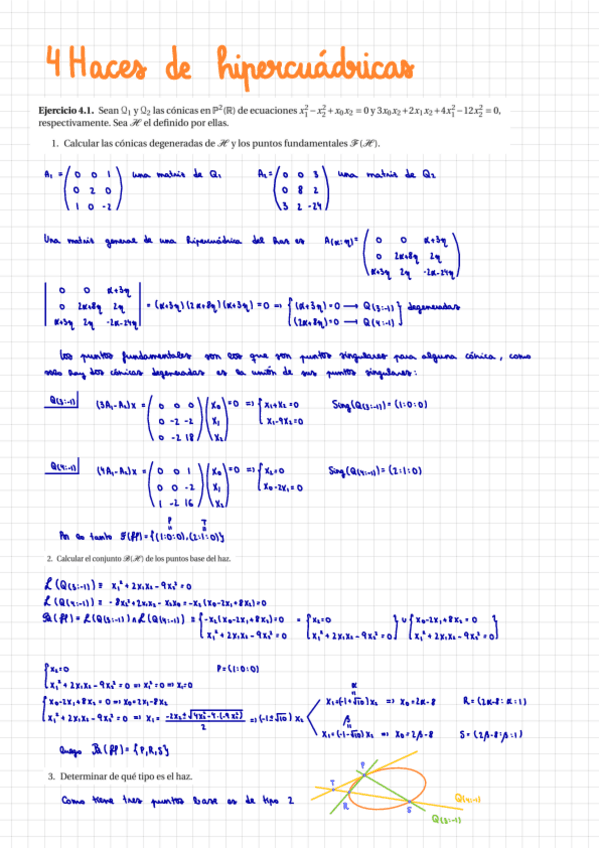 4 Haces de hipercuádricas
Ejercicio 4.1. Sean Q₁ y Q₂ las cónicas en P²(R) de ecuaciones x₁² − x₂² + x₀x₂ = 0 y 3x₀x₂ + 2x₁x₂ + 4x₁² − 12x₂² = 0,
respectivamente. Sea ℋ el definido por ellas.
1. Calcular las cónicas degeneradas de ℋ y los puntos fundamentales ℱ(ℋ).
A₁ = (0 0 1 una matriz de Q₁ A₂ = (0 0 3 una matriz de Q₂
0 2 0 0 8 2
1 0 -2) 3 2 -24)
Una matriz general de una hipercuádrica del haz es A(α:η) = (0 0 α+3η
0 2α+8η 2η
α+3η 2η -2α-24η)
|0 0 α+3η
0 2α+8η 2η = (α+3η)(2α+8η)(α+3η) = 0 => {(α+3η)=0 → Q(3:-1) } degeneradas
α+3η 2η -2α-24η| (2α+8η)=0 → Q(4:-1)
Los puntos fundamentales son los que son puntos singulares para alguna cónica, como
solo hay dos cónicas degeneradas es la unión de sus puntos singulares:
Q(3:-1) (3A₁-A₂)x = (0 0 0 (x₀ = 0 => {x₁+x₂=0 Sing(Q(3:-1)) = (1:0:0)
0 -2 -2 x₁ x₁-9x₂=0
0 -2 18) x₂)
Q(4:-1) (4A₁-A₂)x = (0 0 1 (x₀ = 0 => {x₂=0 Sing(Q(4:-1)) = (2:1:0)
0 0 -2 x₁ x₀-2x₁=0
1 -2 16) x₂)
P T
Por lo tanto ℱ(ℋ) = {(1:0:0), (2:1:0)}
2. Calcular el conjunto ℬ(ℋ) de los puntos base del haz.
L(Q(3:-1)) ≡ x₁²+2x₁x₂-9x₂²=0
L(Q(4:-1)) ≡ -8x₂²+2x₁x₂-x₂x₀ = -x₂(x₀-2x₁+8x₂)=0
ℬ(ℋ) = L(Q(3:-1)) ∧ L(Q(4:-1)) ≡ {-x₂(x₀-2x₁+8x₂)=0 = {x₂=0 } ∪ {x₀-2x₁+8x₂=0 }
x₁²+2x₁x₂-9x₂²=0 x₁²+2x₁x₂-9x₂²=0 x₁²+2x₁x₂-9x₂²=0
{x₂=0 P=(1:0:0)
x₁²+2x₁x₂-9x₂²=0 => x₁²=0 => x₁=0
{x₀-2x₁+8x₂=0 => x₀=2x₁-8x₂ x₁=(-1+√10)x₂ => x₀=2α-8 R=(2α-8:α:1)
x₁²+2x₁x₂-9x₂²=0 => x₁ = (-2x₂±√(4x₂²-4·(-9x₂²)))/2 = (-1±√10)x₂
x₁=(-1-√10)x₂ => x₀=2β-8 S=(2β-8:β:1)
Luego ℬ(ℋ) = {P,R,S}
3. Determinar de qué tipo es el haz.
Como tiene tres puntos base es de tipo 2
P
T
R
S
Q(4:-1)
Q(3:-1)